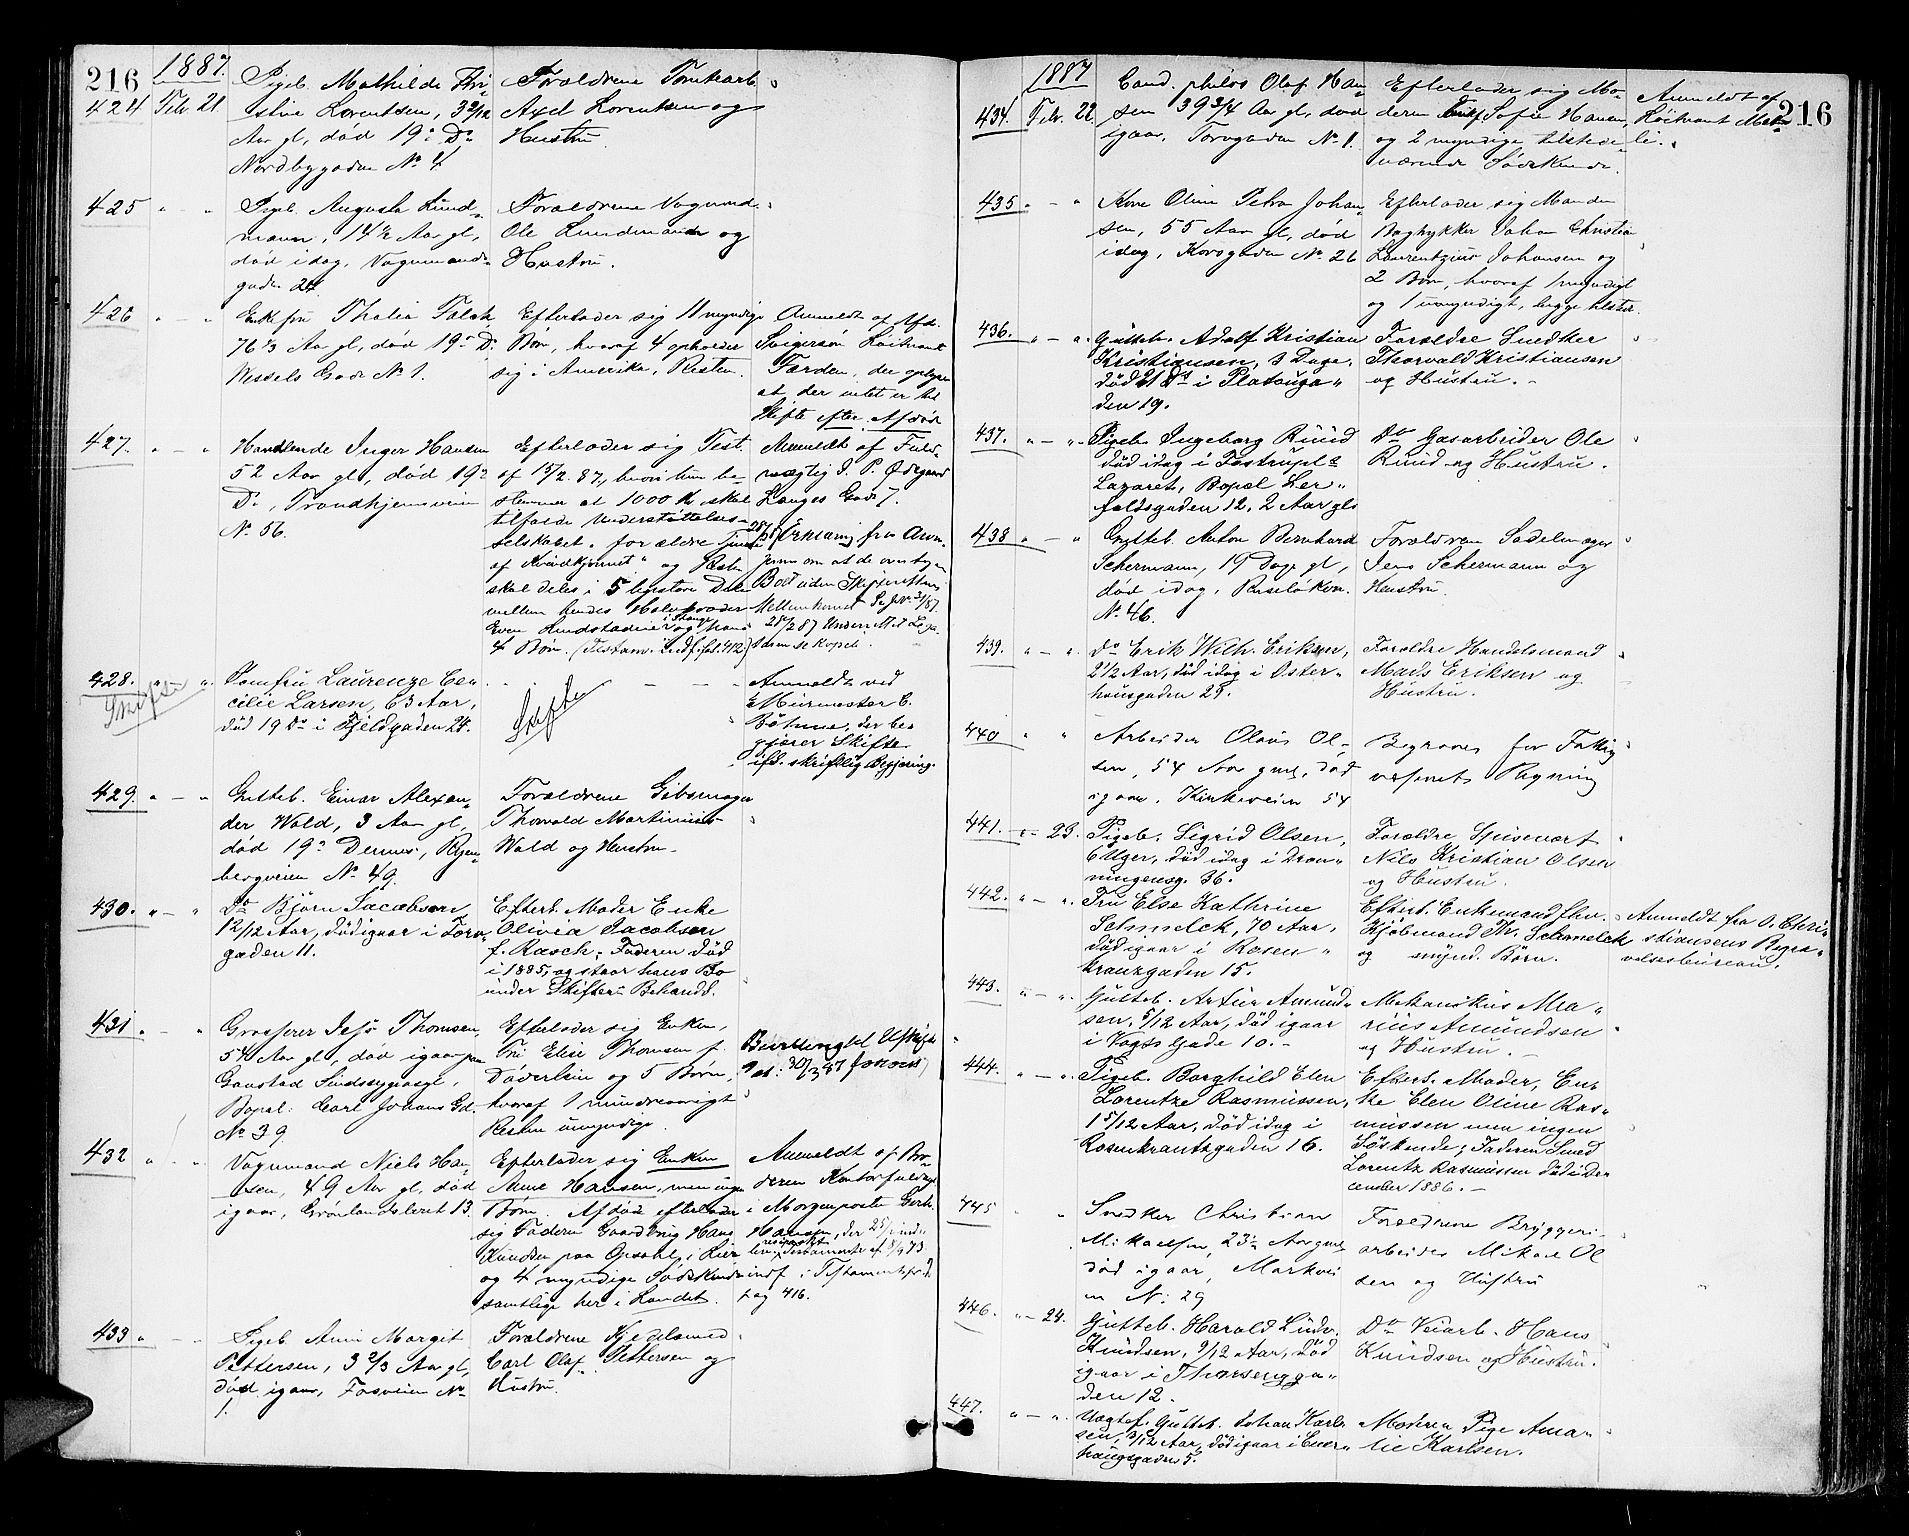 216
1887.
424 Febr. 21. Pigeb. Mathilde Kri-
stine Lorentsen, 3 2/12
Aar gl., død 19de Ds
Nordbygaden No 4
Forældrene Tomtearb.
Axel Lorentsen og
Hustru.
425 " - " Pigeb. Augusta Lund-
mann, 1 1/2 Aar gl,
død idag, Vognmands-
gade 24.
Forældrene Vognmd.
Ole Lundmann og
Hustru.
426 " - " Enkefru Thalia Falch
76 1/3 Aar gl, død 19de Ds
Wessels Gade No 1.
Efterlader sig 11 myndige
Børn, hvoraf 4 opholder
sig i Amerika, Resten
Anmeldt af Afd.
Svigersøn Løitnant
Færden, der oplyser
at der intet er til
Skifte efter Afdød
427. " - " Handlende Inger Hansen
52 Aar gl, død 19de
Ds, Trondhjemsveien
No 56.
Efterlader sig Test.
af 15/2. 87, hvori hun be-
stemmer at 1000 Kr. skal
tilfalde Understøttelses-
selskabet for ældre Tjenere
af Kvindkjønnet" og Resten
skal deles i 5 ligestore Dele
mellem hendes Halvbroder
Even Hindstadeie i Stange og hans
4 Børn. (Testam. i Ledf. fol. 412.)
Anmeldt af Fuld-
mægtig J. P. Ødegaard
Langes Gade 7.
428. " - " Jomfru Laurenze Ce-
cilie Larsen, 63 Aar,
død 19 Ds i Fjeldgaden 24.
Skifte
- - -
Skifte
Anmeldt ved
Muirmester C.
Böhme, der be-
gjærer Skifte
ifl. skriftlig Begjæring.
429. " - " Gutteb. Einar Alexan-
der Wold, 3 Aar gl,
død 19de Dennes, Ekeberg-
bergveien No 49.
Forældrene Gibsmager
Thorvald Martinius
Wold og Hustru.
430. " - " Do Bjørn Jacobsen
12/12 Aar, død igaar i Torv-
gaden 11.
Efterl. Moder Enke
Olivia Jacobsen
f. Rasch; Faderen død
i 1885, og staar hans Bo
under Skifter. Behandl.
431 " - " Grosserer Jess Thomsen,
54 Aar gl, død igaar paa
Gaustad Sindssygeasyl,
Bopæl: Carl Johans Gd
No 39
Efterlader sig Enken,
Fru Elise Thomsen f.
Döderlein og 5 Børn,
hvoraf 1 mindreaarigt
Resten umyndige.
432 " - " Vognmand Niels Han-
sen, 49 Aar gl, død
igaar, Grønlandsleret 13.
Efterlader sig Enken
Anne Hansen, men ingen
Børn. Afdød efterlader
sig Faderen Gaardbrug. Hans
Knudsen paa Opsahl, i Lier
og 4 myndige Sødskende
samtlige her i Landet.
Anmeldt af Bro-
deren Kontorfuldm.
i Morgenposten Gerh.
Hansen,
indf. i Testamentsprot.
Lag 416.
433 " - " Pigeb. Anni Margit
Pettersen, 3 2/3 Aar gl,
død igaar, Fosveien No
1.
Forældrene Kjedelsmed
Carl Olaf Pettersen og
Hustru.
216
1887
434. Febr. 22. Cand. philos Olaf Han-
sen 39 3/4 Aar gl, død
igaar, Torvgaden No 1.
Efterlader sig Mo-
deren Enkef. Sofie Hansen,
og 2 myndige tilstede-
værende Sødskende.
Anmeldt af
435 " - " Kone Oline Petra Johan-
sen, 55 Aar gl, død
idag, Korsgaden No 26
Efterlader sig Manden
Bogtrykker Johan Christian
Laurentzius Johansen og
2 Børn, hvoraf 1 myndigt
og 1 umyndigt, begge tilsted.
436. " - " Gutteb. Adolf Kristian
Kristiansen, 3 Dage,
død 21 Ds i Platouga-
den 19.
Forældre Snedker
Thorvald Kristiansen
og Hustru. -
437. " - " Pigeb. Ingeborg Ruud
død idag i Tostrupl.s
Lazaret, Bopæl Her-
foldsgaden 12, 2 Aar gl.
Do Gasarbeider Ole
Ruud og Hustru.
438 " - " Gutteb. Anton Bernhard
Schermann, 19 Dage gl,
død idag, Ruseløkvn.
No 46.
Forældrene Sadelmager
Jens Schermann og
Hustru.
439. " - " Do Erik Wilh. Eriksen,
2 1/2 Aar, død idag i Oster-
hausgaden 29.
Forældre Handelsmand
Mads Eriksen og
Hustru.
440 " " Arbeider Olaus Ol-
sen, 54 Aar gml, død
igaar. Kirkeveien 54
Begraves for Fattig-
væsenets Regning
441. " - 23. Pigeb. Sigrid Olsen,
6 Uger, død idag i Dron-
ningensg. 36.
Forældre Spisevært
Nils Kristian Olsen
og Hustru.
442. " - " Fru Else Kathrine
Schmelck, 70 Aar,
død igaar i Rosen-
kranzgaden 15.
Efterl. Enkemand fhv.
Kjøbmand Th. Schmelck
og mynd. Børn.
Anmeldt fra O. Chri-
stiansens Begra-
velsesbureau.
443. " - " Gutteb. Artur Amund-
sen, 5/12 Aar, død igaar
i Vogts Gade 10. -
Mekanikus Ma-
rius Amundsen
og Hustru. -
444. " - " Pigeb. Borghild Elen
Lorentze Rasmussen,
1 5/12 Aar, død idag i
Rosenkrantzgaden 16.
Efterl. Moder, En-
ke Elen Oline Ras-
mussen men ingen
Søskende; Faderen Smed
Lorentz Rasmussen død i De-
cember 1886. -
445 " Snedker Christian
Mikaelsen, 23 1/2 Aar gml
død igaar, Markvei
en N: 29
Forældrene Bryggeri-
arbeider Mikael Ol
sen og Hustru
446. " - 24. Gutteb. Harald Ludv.
Knudsen, 9/12 Aar, død
igaar i Thorsengga-
den 12.
Do Veiarb. Hans
Knudsen og Hustru.
447. " - " Uægtef. Gutteb. Johan Karl-
sen, 3/12 Aar, død igaar i Ener-
haugsgaden 5.
Moderen Pige Ama-
lie Karlsen.